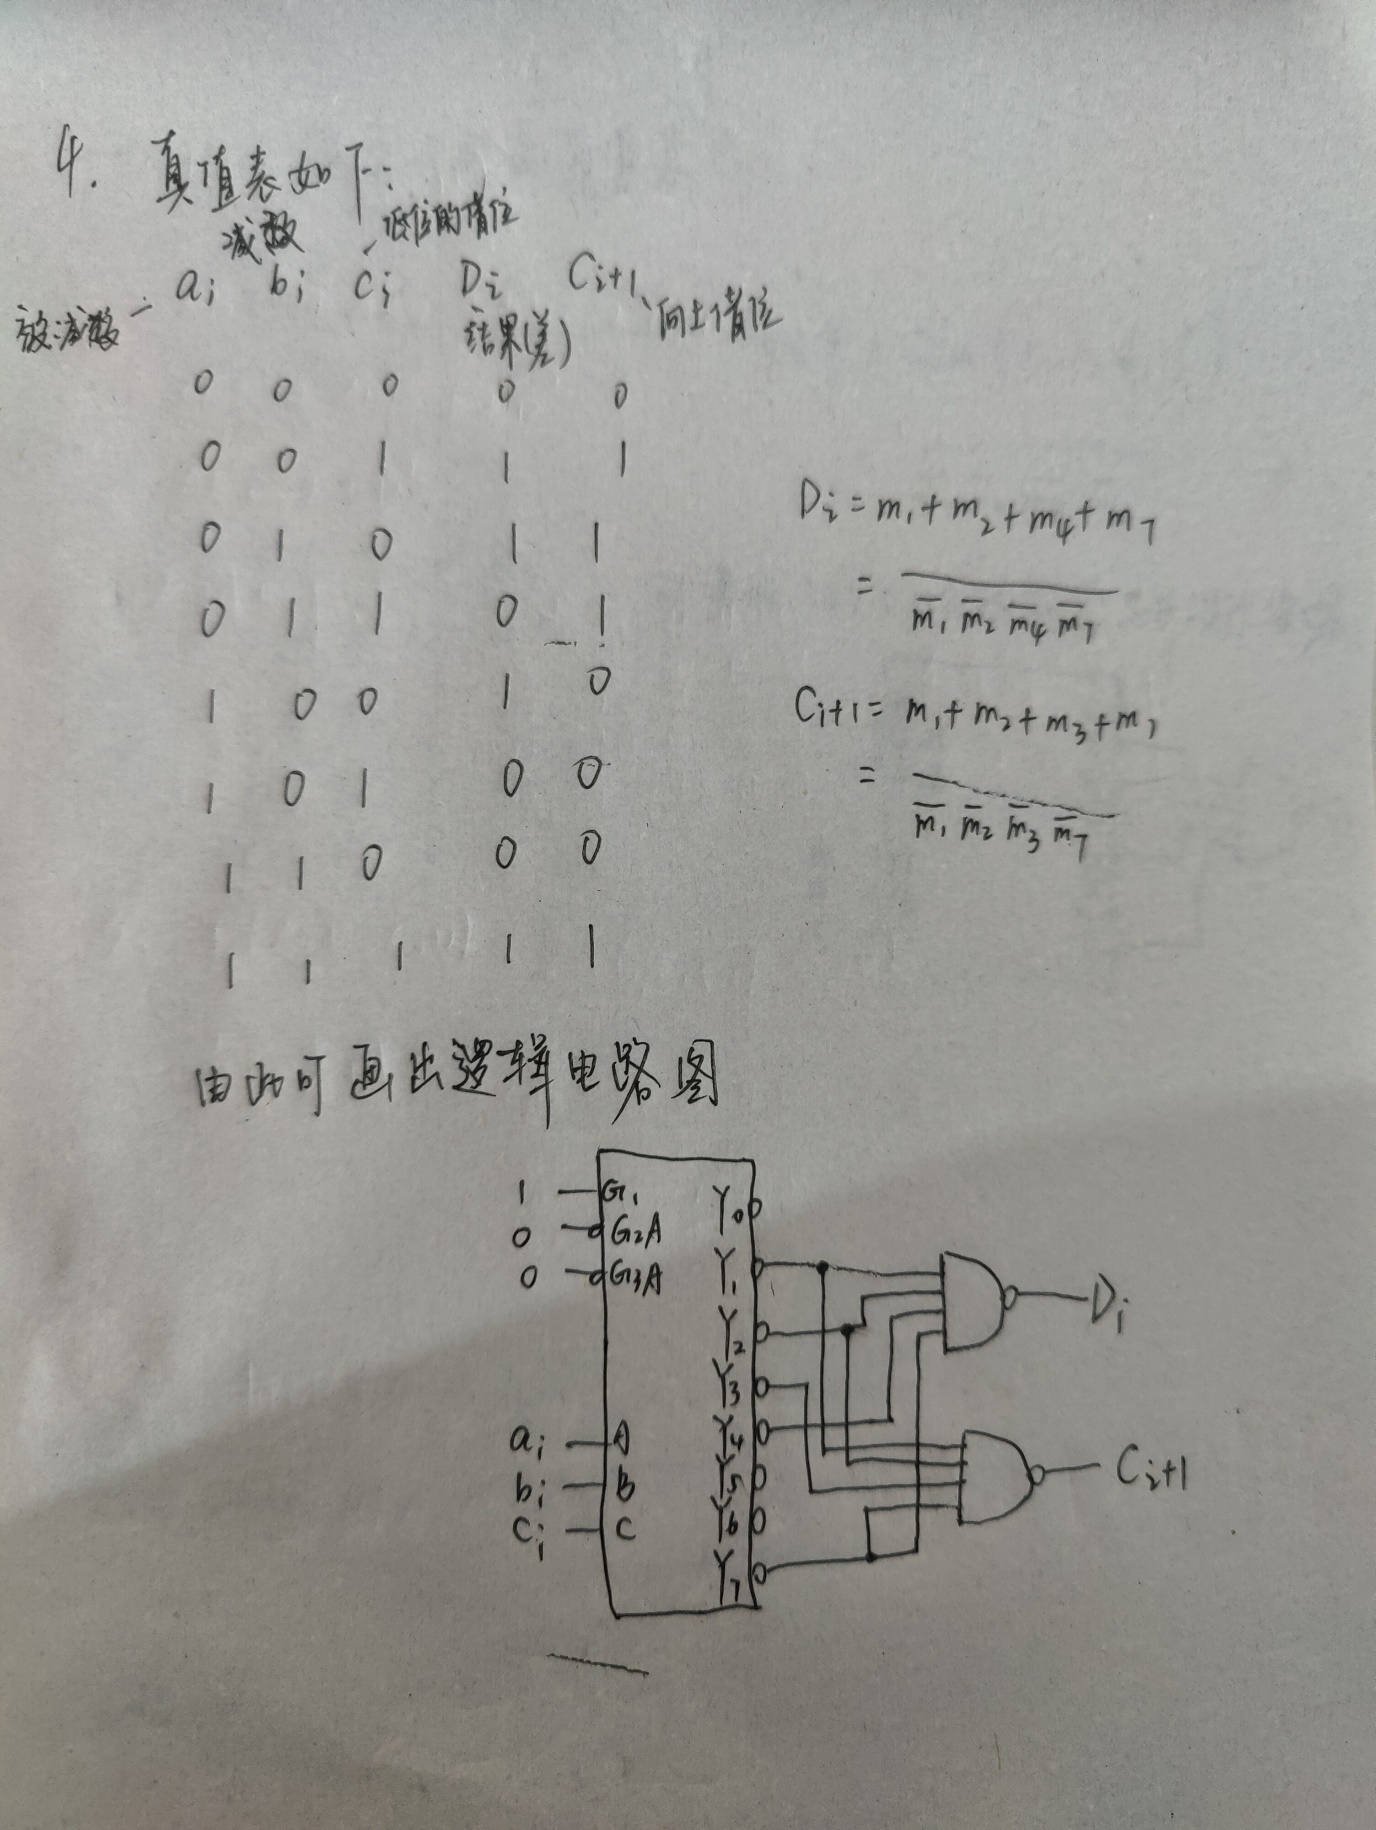 4. 真值表如下:
减数 低位的借位
被减数 ai bi ci Di Ci+1 向上借位
结果(差)
0 0 0 0 0
0 0 1 1 1
0 1 0 1 1
0 1 1 0 1
1 0 0 1 0
1 0 1 0 0
1 1 0 0 0
1 1 1 1 1
Di = m1 + m2 + m4 + m7
= \overline{m̅1 m̅2 m̅4 m̅7}
Ci+1 = m1 + m2 + m3 + m7
= \overline{m̅1 m̅2 m̅3 m̅7}
由此可画出逻辑电路图
1 G1 Y0
0 G2A Y1
0 G3A Y2
Y3
ai A Y4
bi B Y5
ci C Y6
Y7
Di
Ci+1